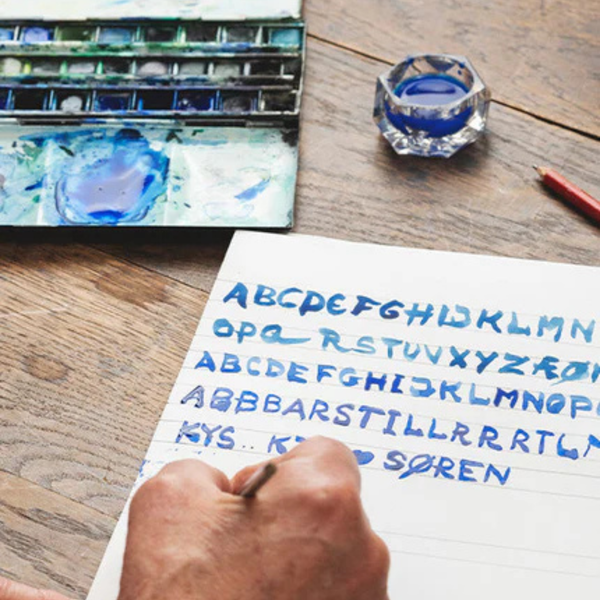 ABCDEFGHIJKLMN
OPQ RSTUVXYZÆØ
ABCDEFGHIJKLMNOP
ABBBBARSTILLRRRTL
KYS.. K ♥ SØREN